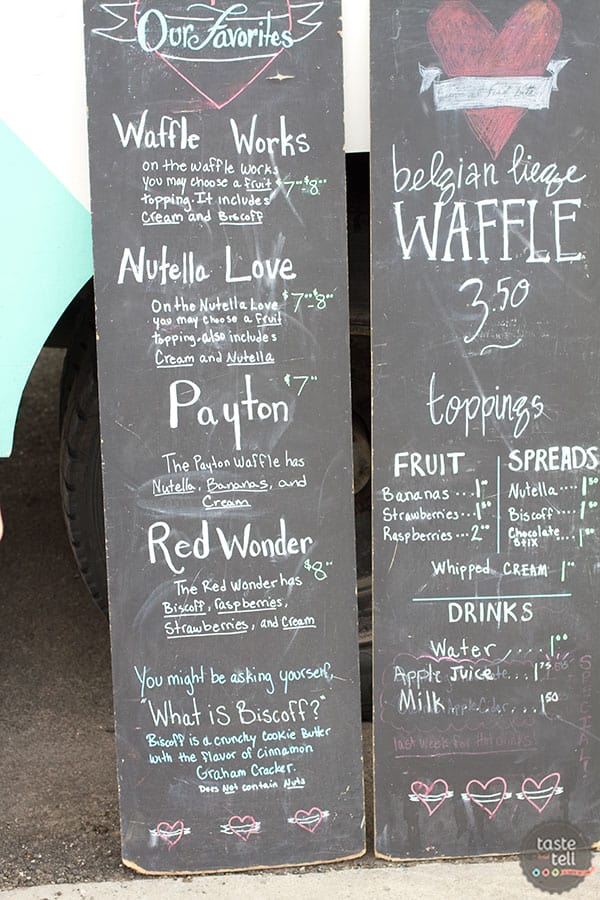 Our Favorites
Waffle Works
on the waffle works
you may choose a fruit $7⁰⁰-$8⁰⁰
topping. It includes
Cream and Biscoff
Nutella Love
On the Nutella Love $7⁰⁰-$8⁰⁰
you may choose a Fruit
topping. also includes
Cream and Nutella
$7⁰⁰
Payton
The Payton Waffle has
Nutella, Bananas, and
Cream
Red Wonder
$8⁰⁰
The Red Wonder has
Biscoff, raspberries,
Strawberries, and Cream
You might be asking yourself,
"What is Biscoff?"
Biscoff is a crunchy Cookie Butter
with the flavor of cinnamon
Graham Cracker.
Does Not contain Nuts
belgian liege
WAFFLE
3.50
toppings
FRUIT
Bananas...1⁰⁰
Strawberries...1⁵⁰
Raspberries...2⁰⁰
SPREADS
Nutella....1⁵⁰
Biscoff....1⁵⁰
Chocolate
Stix...1⁵⁰
Whipped CREAM 1⁰⁰
DRINKS
Water....1⁰⁰
Apple Juice 1⁷⁵
Milk...1⁵⁰
last week for Hot drinks!
SPECIAL
taste
tell